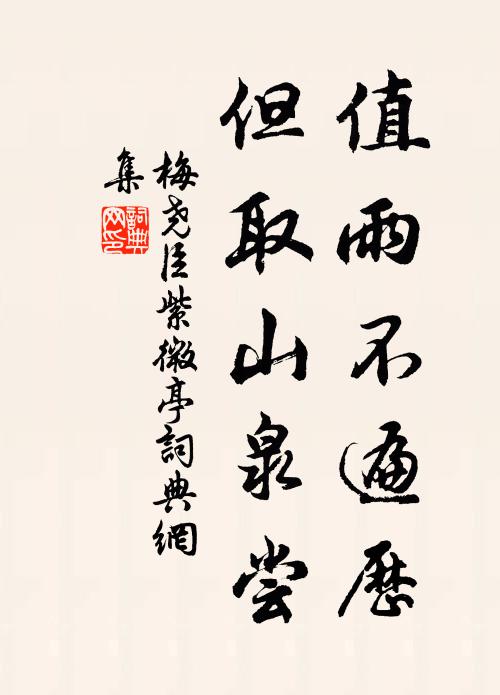 值雨不遍歷
但取山泉尝
梅尧臣紫微亭詞典網
集
詞典网印